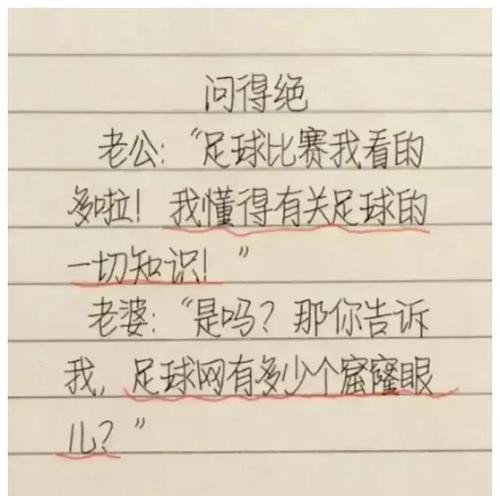 问得绝
老公:“足球比赛我看的
多啦!我懂得有关足球的
一切知识!”
老婆:“是吗?那你告诉
我,足球网有多少个窟窿眼
儿?”